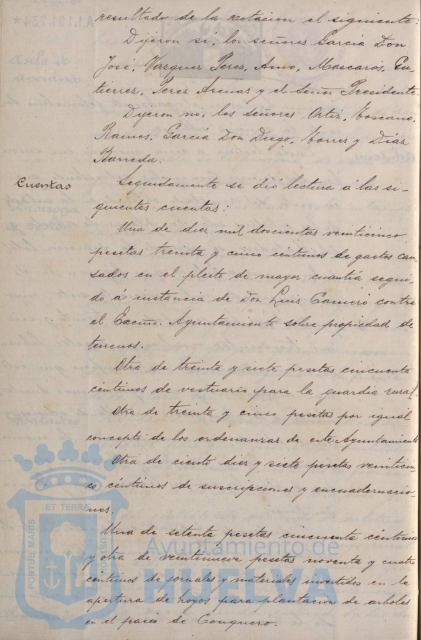 resultado de la votacion el siguiente:
Dijeron si, los señores Garcia Don
José, Vazquez Perez, Amo, Mascarós, Gu-
tierrez, Perez Arenas y el Señor Presidente
Dijeron no, los señores Ortiz, Toscano,
Ramos, Garcia Don Diego, Torres y Diaz
Barreda.
Cuentas
Seguidamente se dió lectura á las si-
guientes cuentas:
Una de diez mil doscientas veinticinco
pesetas treinta y cinco céntimos de gastos cau-
sados en el pleito de mayor cuantía segui-
do á instancia de Don Luis contra
el Excmo. Ayuntamiento sobre propiedad de
terrenos.
Otra de treinta y siete pesetas cincuenta
centimos de vestuario para la guardia rural.
Otra de treinta y cinco pesetas por igual
concepto de los ordenanzas de este Ayuntamiento
Otra de ciento diez y siete pesetas veinticin-
co céntimos de suscripciones y encuadernacio-
nes.
Una de setenta pesetas cincuenta céntimos
y otra de veintinueve pesetas noventa y cuatro
centimos de jornales y materiales invertidos en la
apertura de hoyos para plantacion de arboles
en el paseo de Conquero.
PORTUS MARIS ET TERRAE
Ayuntamiento de
HUELVA